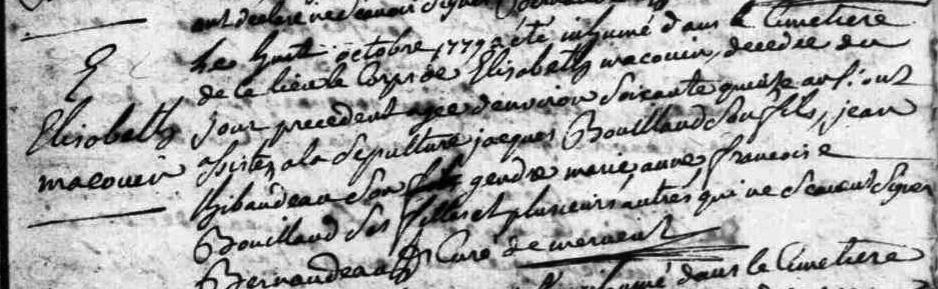 ont declaré ne scavoir signer
Le huit octobre 1779 a été inhumé dans le Cimetiere
de ce lieu le Corps de Elisabeth macouin, decedée du
Elisabeth jour precedent agée d'environ soixante quatre ans: ont
macouin assistez a la sepulture jacques Bouillaud son fils, jean
Ribaudeau son gendre marie, anne, francoise
Bouillaud ses filles et plusieurs autres qui ne scavent signer
Bernaudeau Curé de mervent
inhumé dans le Cimetiere